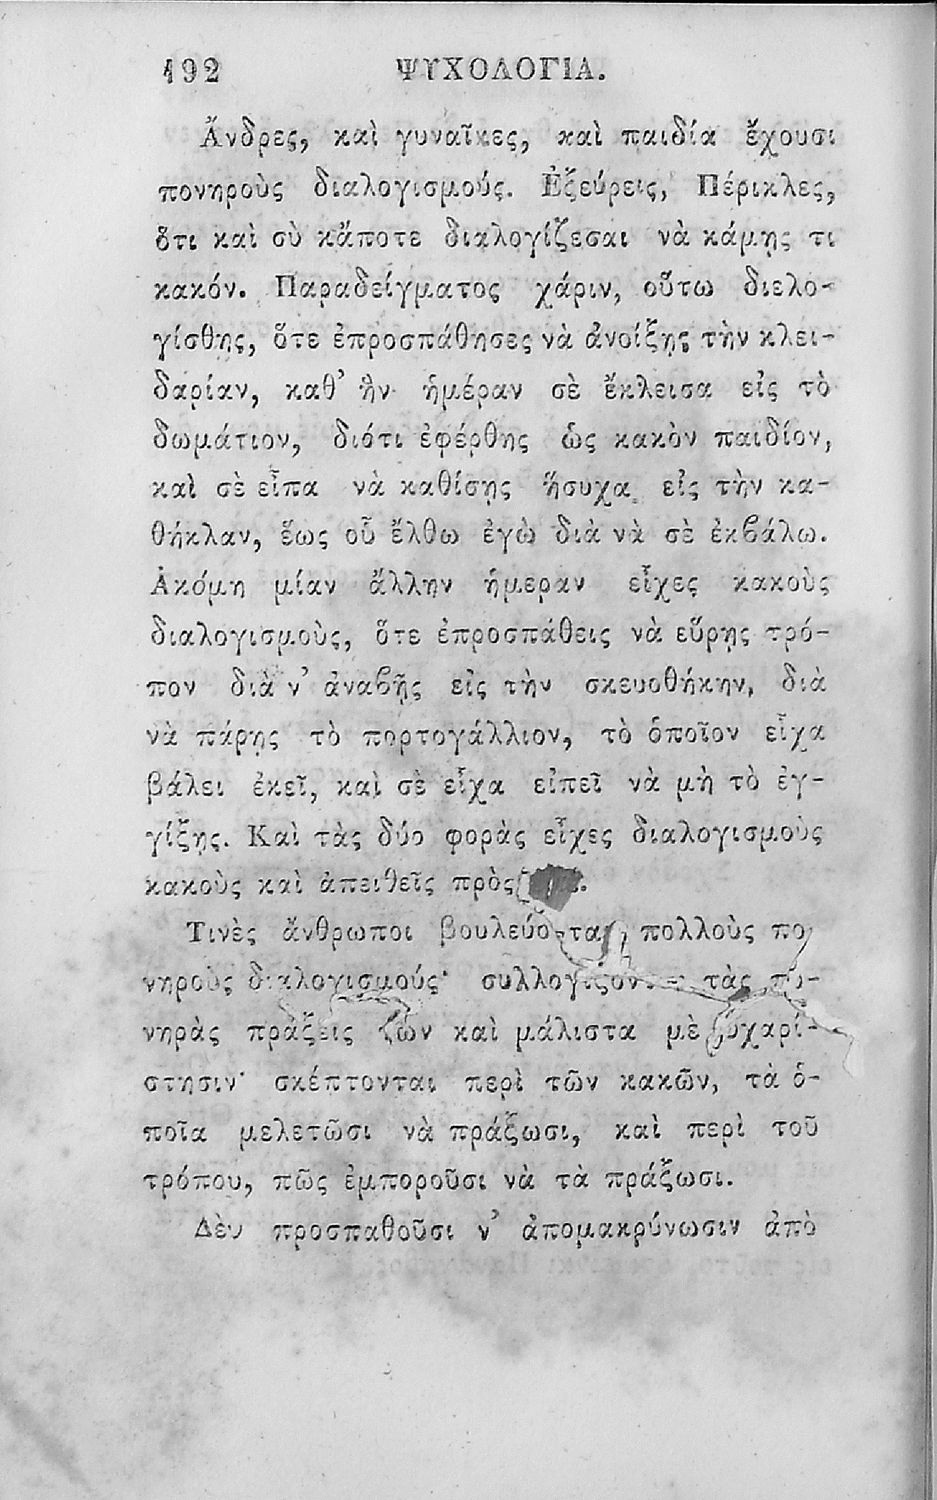 192 ΨΥΧΟΛΟΓΙΑ.
Ἄνδρες, καὶ γυναῖκες, καὶ παιδία ἔχουσι
πονηροὺς διαλογισμούς. Ἐξεύρεις, Πέρικλες,
ὅτι καὶ σὺ κἄποτε διαλογίζεσαι νὰ κάμῃς τι
κακόν. Παραδείγματος χάριν, οὕτω διελο-
γίσθης, ὅτε ἐπροσπάθησες νὰ ἀνοίξῃς τὴν κλει-
δαρίαν, καθ’ ἣν ἡμέραν σὲ ἔκλεισα εἰς τὸ
δωμάτιον, διότι ἐφέρθης ὡς κακὸν παιδίον,
καὶ σὲ εἶπα νὰ καθίσῃς ἥσυχα εἰς τὴν κα-
θήκλαν, ἕως οὗ ἔλθω ἐγὼ διὰ νὰ σὲ ἐκβάλω.
Ἀκόμη μίαν ἄλλην ἡμεραν εἶχες κακοὺς
διαλογισμοὺς, ὅτε ἐπροσπάθεις νὰ εὕρῃς τρό-
πον διὰ ν’ ἀναβῇς εἰς τὴν σκευοθήκην, διὰ
νὰ πάρῃς τὸ πορτογάλλιον, τὸ ὁποῖον εἶχα
βάλει ἐκεῖ, καὶ σὲ εἶχα εἰπεῖ νὰ μὴ τὸ ἐγ-
γίξῃς. Καὶ τὰς δύο φορὰς εἶχες διαλογισμοὺς
κακοὺς καὶ ἀπειθεῖς πρὸς
Τινὲς ἄνθρωποι βουλεύονται πολλοὺς πο
νηροὺς διαλογισμούς· συλλογίζονται τὰς πο-
νηρὰς πράξεις των καὶ μάλιστα μὲ εὐχαρί-
στησιν· σκέπτονται περὶ τῶν κακῶν, τὰ ὁ-
ποῖα μελετῶσι νὰ πράξωσι, καὶ περὶ τοῦ
τρόπου, πῶς ἐμποροῦσι νὰ τὰ πράξωσι.
Δὲν προσπαθοῦσι ν’ ἀπομακρύνωσιν ἀπὸ